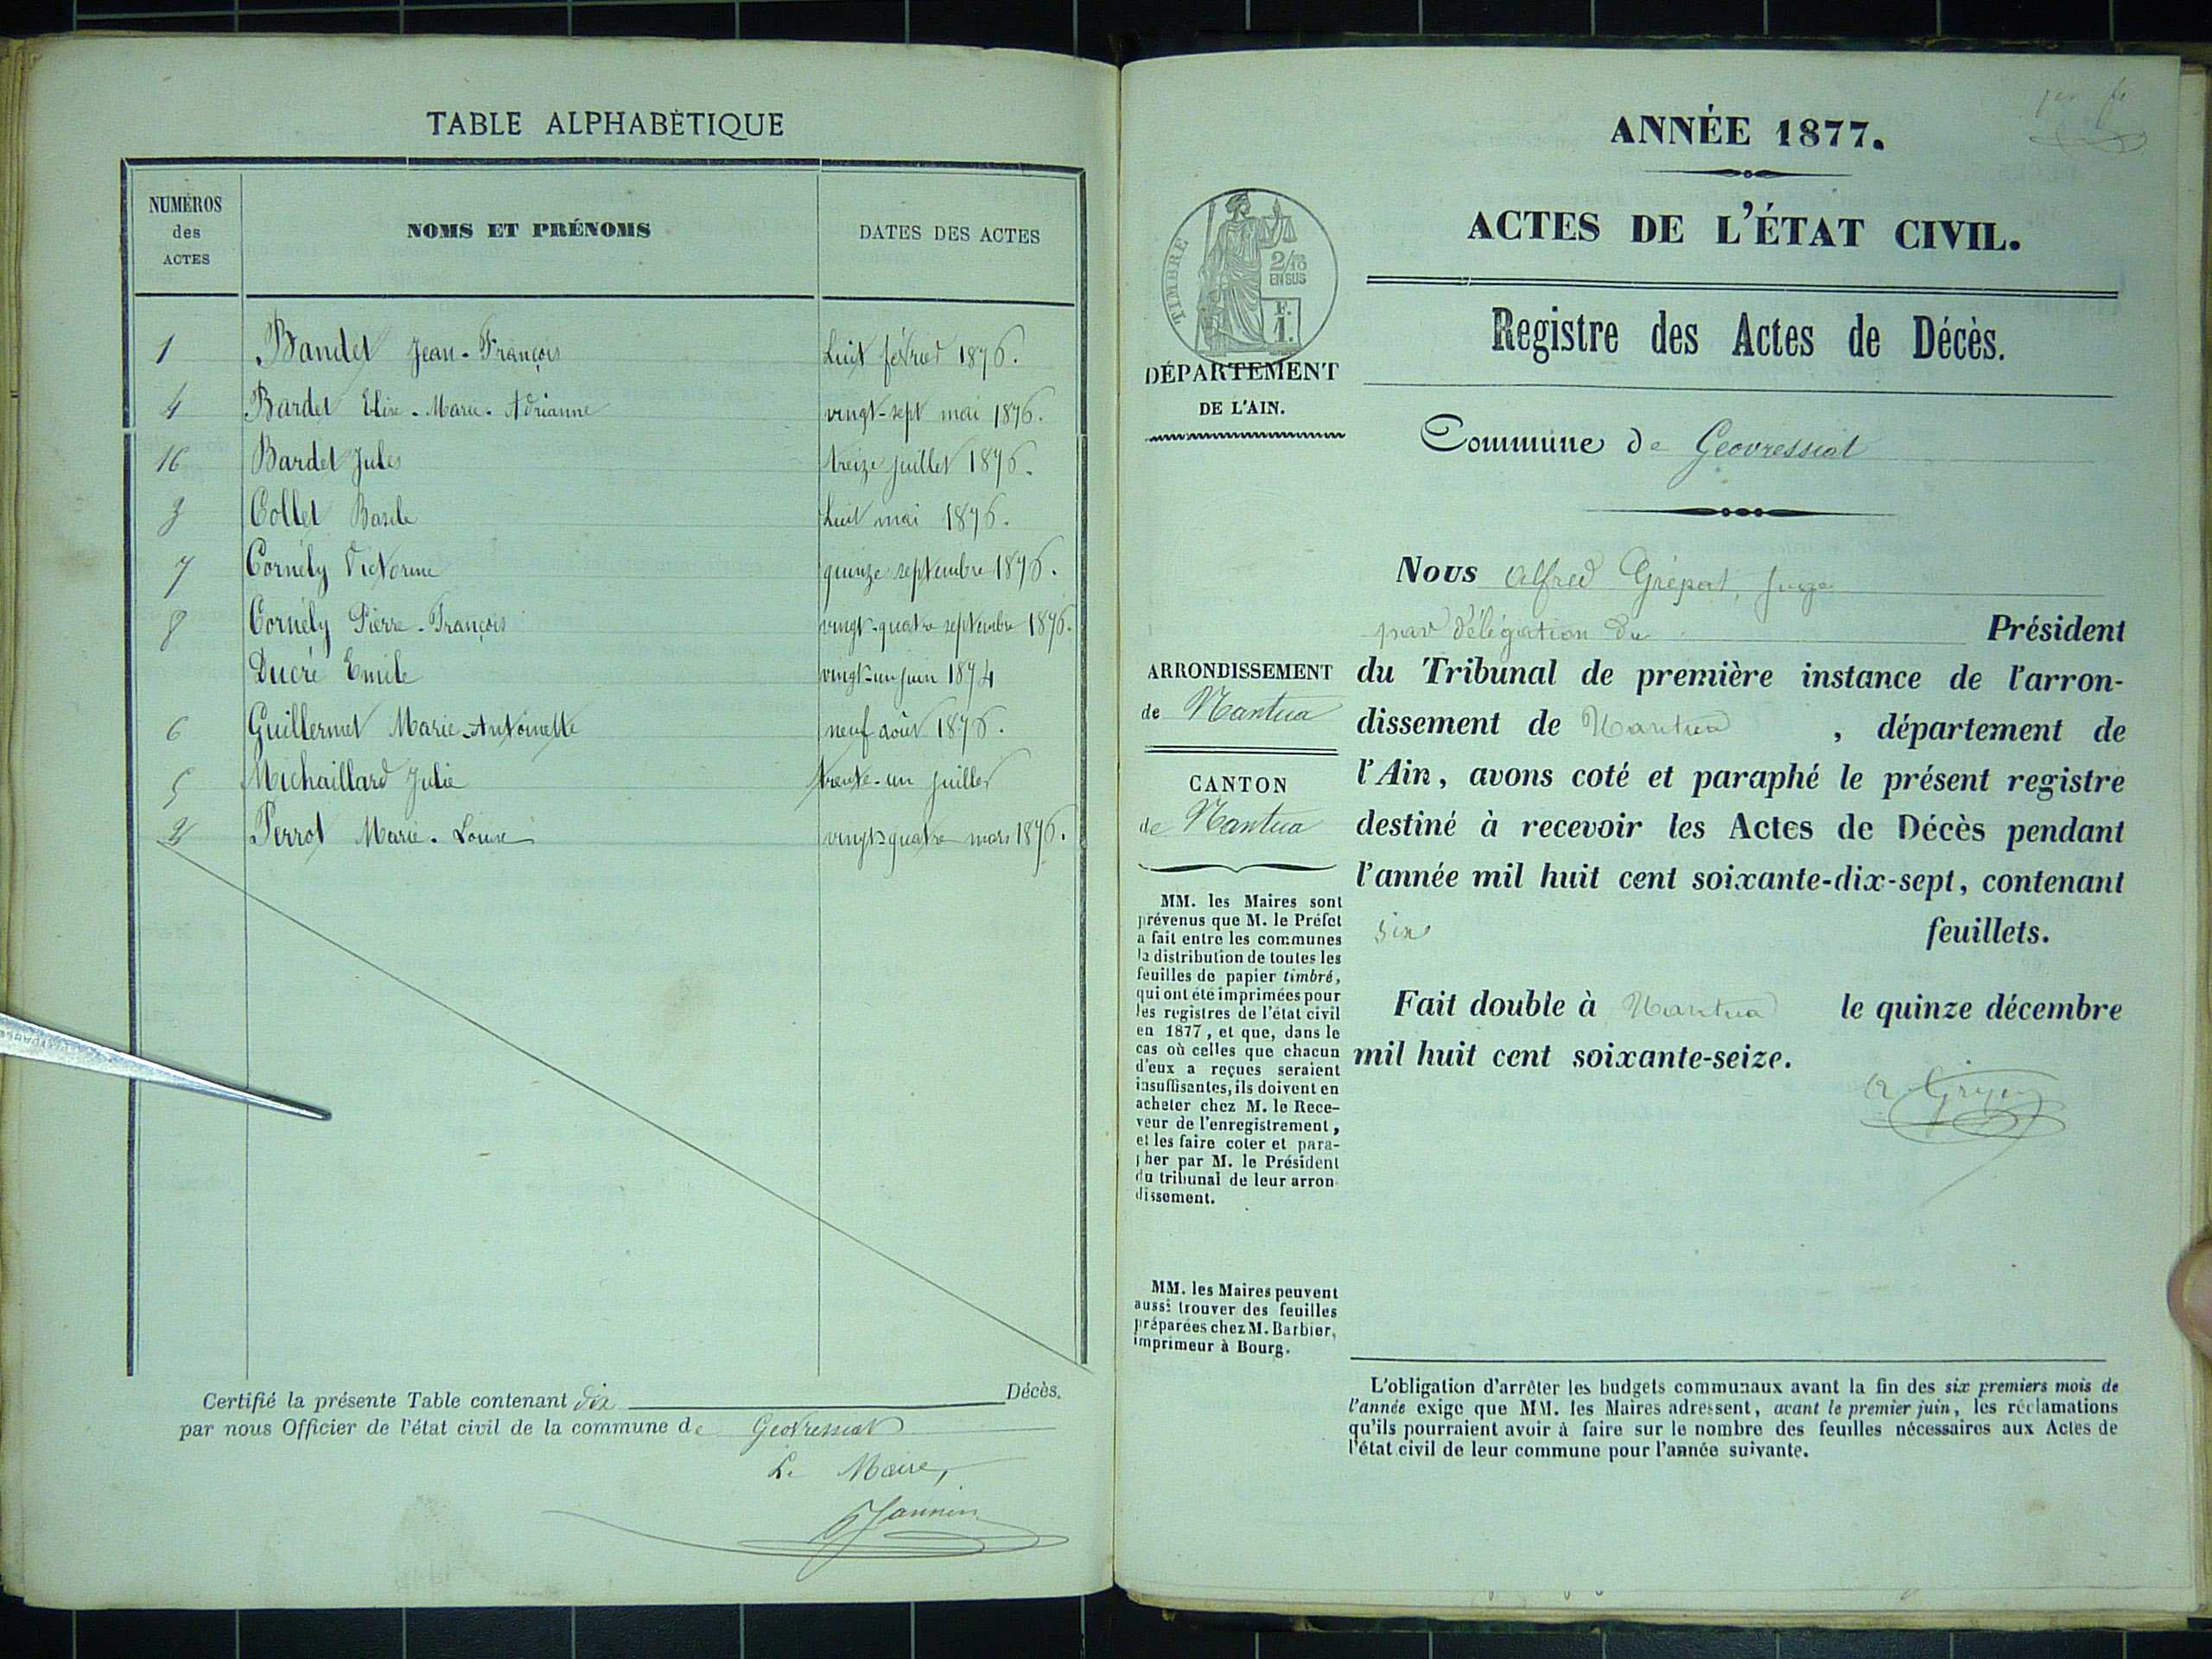 TABLE ALPHABÉTIQUE
NUMÉROS des ACTES
NOMS ET PRÉNOMS
DATES DES ACTES
1 Bandet Jean-François huit février 1876.
4 Bardet Elise-Marie-Adrianne vingt-sept mai 1876.
16 Bardet Jules treize juillet 1876.
3 Collet Basile huit mai 1876.
7 Cornély Victorine quinze septembre 1876.
8 Cornély Pierre-François vingt-quatre septembre 1876.
Ducré Emile vingt-un juin 1874
6 Guillermet Marie-Antoinette neuf août 1876.
5 Michaillard Julie trente-un juillet
2 Perrot Marie-Louise vingt-quatre mars 1876.
Certifié la présente Table contenant dix Décès.
par nous Officier de l'état civil de la commune de Geovressiat
Le Maire,
Jannin
ANNÉE 1877.
ACTES DE L'ÉTAT CIVIL.
TIMBRE
2/10
EN SUS
F.
1.
Registre des Actes de Décès.
DÉPARTEMENT
DE L'AIN.
Commune de Geovressiat
Nous Alfred Grépat, Juge
par délégation du Président
du Tribunal de première instance de l'arron-
dissement de Nantua, département de
l'Ain, avons coté et paraphé le présent registre
destiné à recevoir les Actes de Décès pendant
l'année mil huit cent soixante-dix-sept, contenant
six feuillets.
Fait double à Nantua le quinze décembre
mil huit cent soixante-seize.
ARRONDISSEMENT
de Nantua
CANTON
de Nantua
MM. les Maires sont
prévenus que M. le Préfet
a fait entre les communes
la distribution de toutes les
feuilles de papier timbré,
qui ont été imprimées pour
les registres de l'état civil
en 1877, et que, dans le
cas où celles que chacun
d'eux a reçues seraient
insuffisantes, ils doivent en
acheter chez M. le Rece-
veur de l'enregistrement,
et les faire coter et para-
pher par M. le Président
du tribunal de leur arron-
dissement.
MM. les Maires peuvent
aussi trouver des feuilles
préparées chez M. Barbier,
imprimeur à Bourg.
L'obligation d'arrêter les budgets communaux avant la fin des six premiers mois de
l'année exige que MM. les Maires adressent, avant le premier juin, les réclamations
qu'ils pourraient avoir à faire sur le nombre des feuilles nécessaires aux Actes de
l'état civil de leur commune pour l'année suivante.